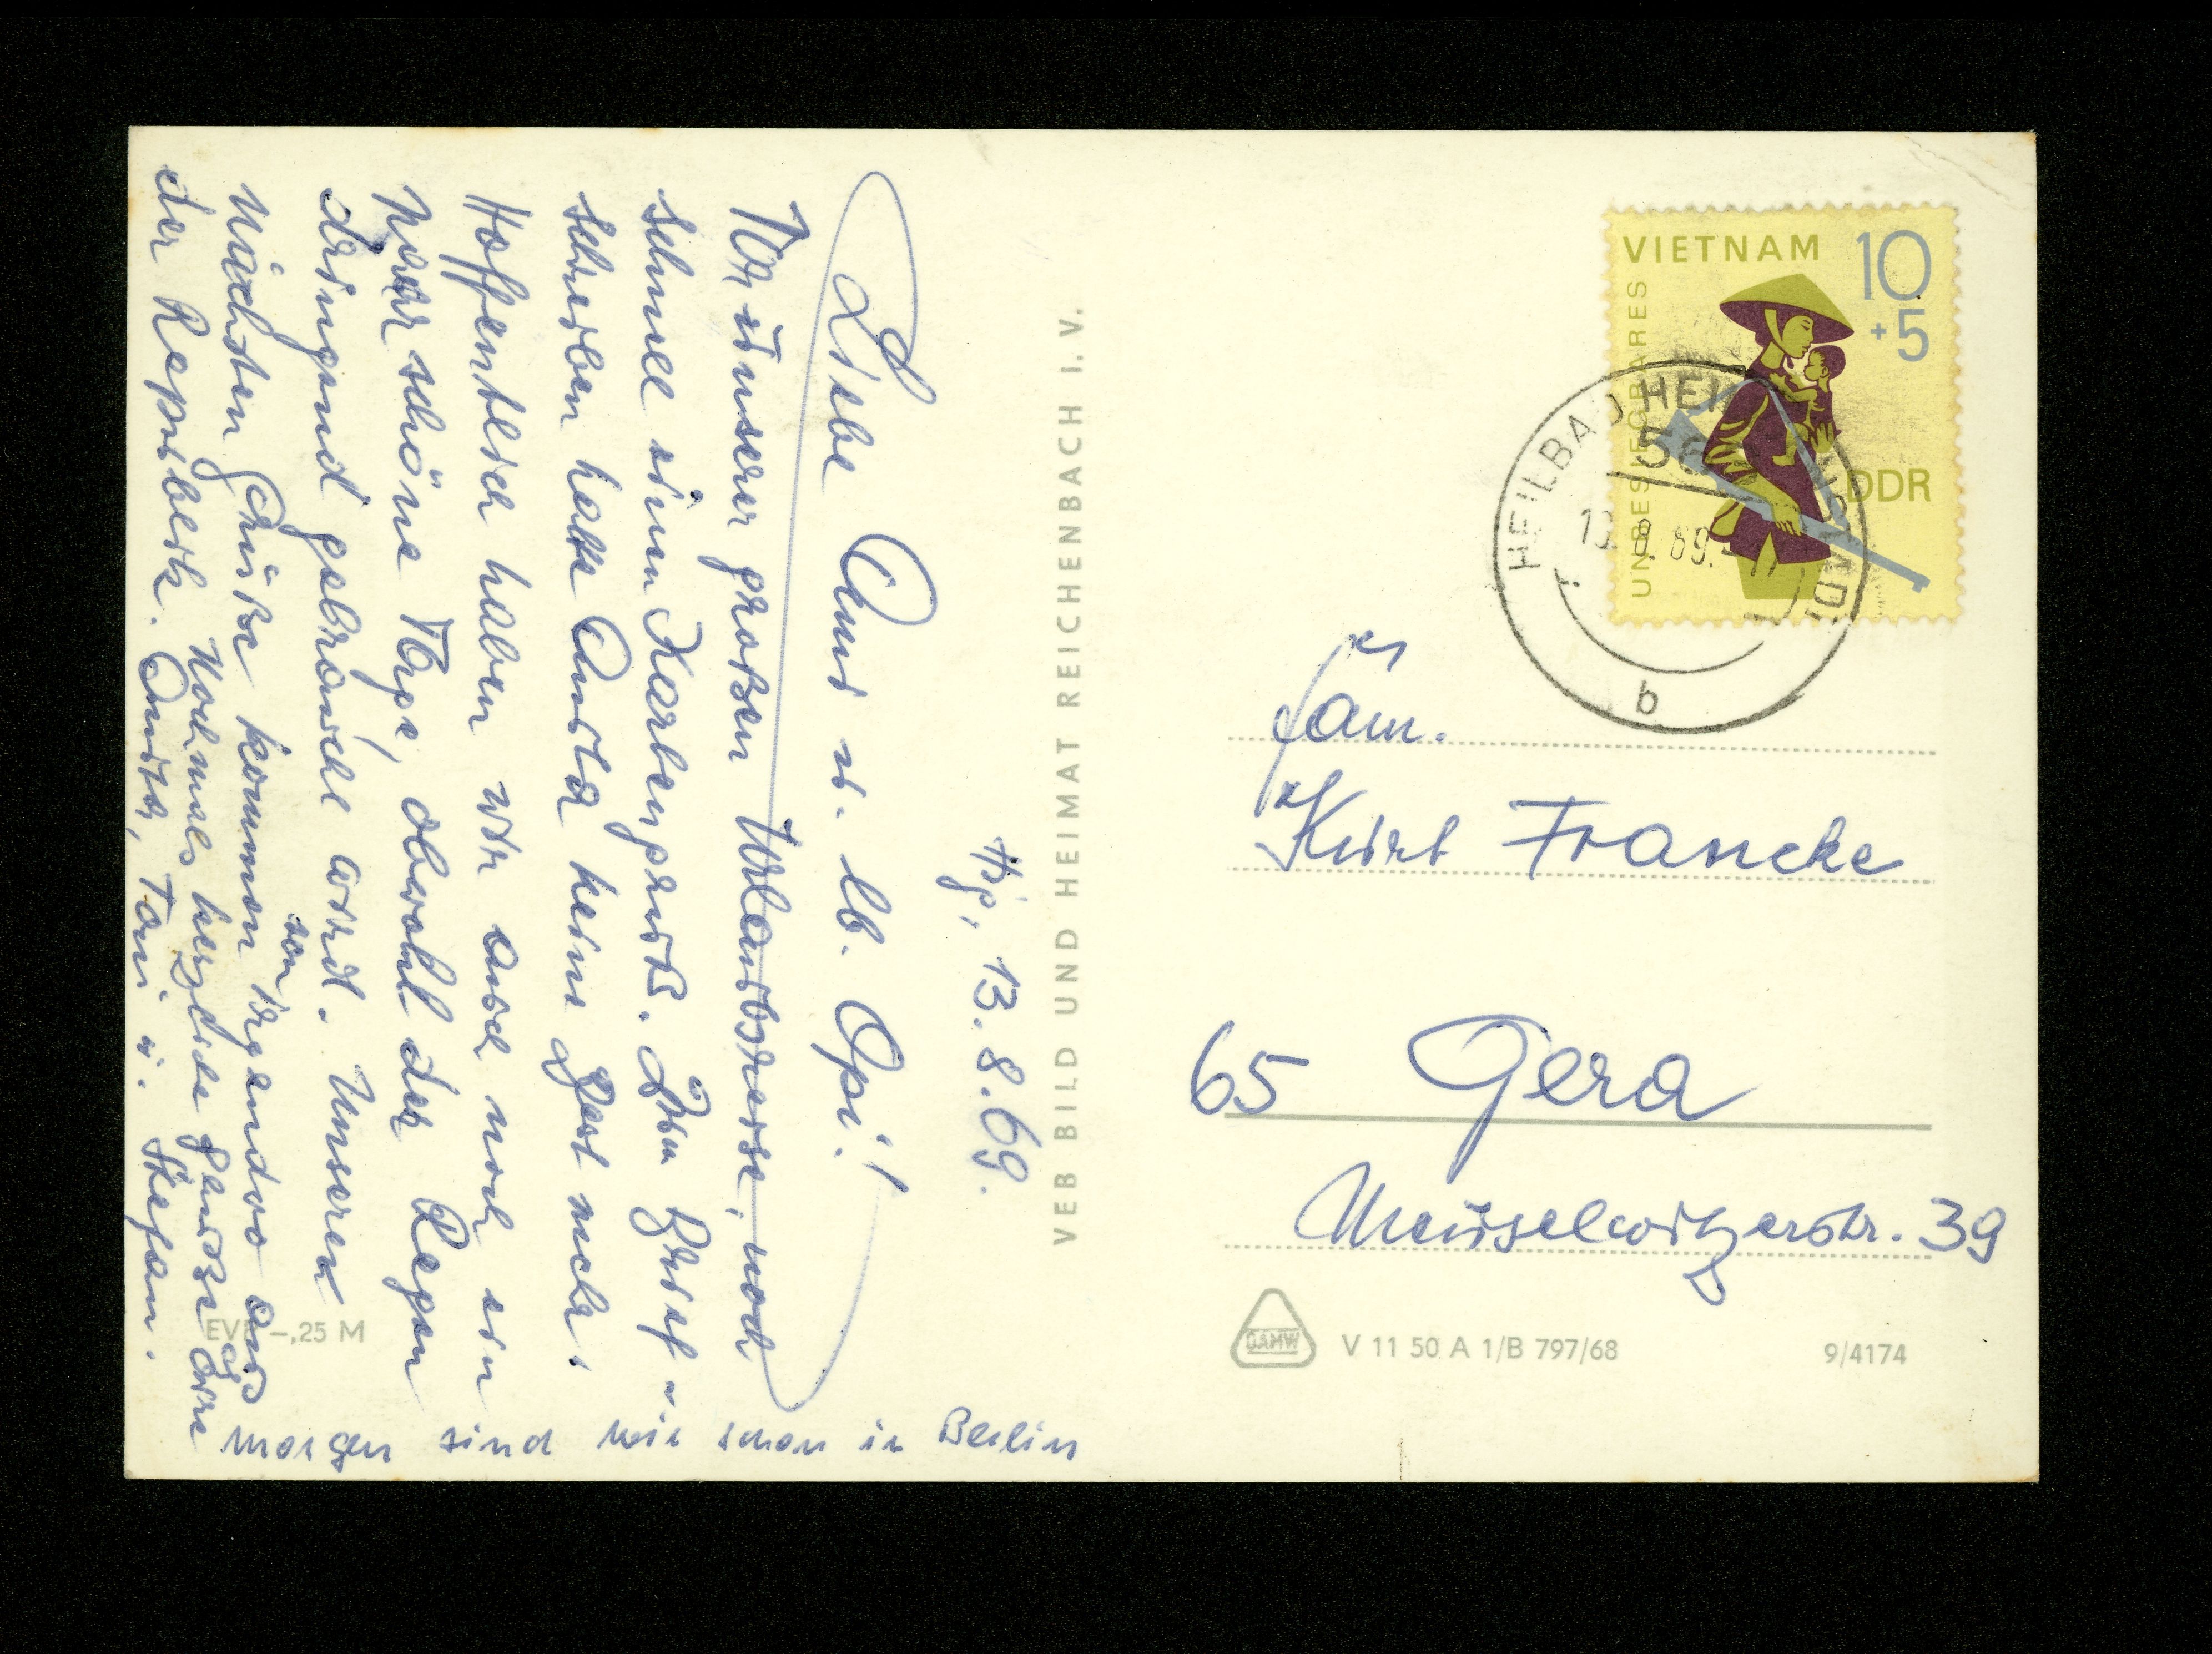 Hg, 13.8.69.
Liebe Omi u. lb. Opi!
Vor unserer großen Urlaubsreise, noch
schnell einen Kartengruß. Zum Brief-
schreiben hatte Anita keine Zeit mehr.
Hoffentlich haben wir auch noch ein
paar schöne Tage, obwohl der Regen
dringend gebraucht wird. Unseren
nächsten Grüße kommen von irgendwo aus
der Republik. Nochmals herzliche Grüße Eure
Anita, Toni u. Stefan.
morgen sind wir schon in Berlin
VEB BILD UND HEIMAT REICHENBACH I. V.
VIETNAM
10
+5
UNBESIEGBARES
DDR
HEILBAD HEILIGENSTADT
13.8.69.
b
Fam.
Kurt Francke
65 Gera
Meuselwitzerstr. 39
EVP -,25 M
DAMW
V 11 50 A 1/B 797/68
9/4174